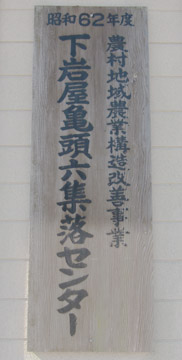 昭和62年度
農村地域農業構造改善事業
下岩屋亀頭六集落センター